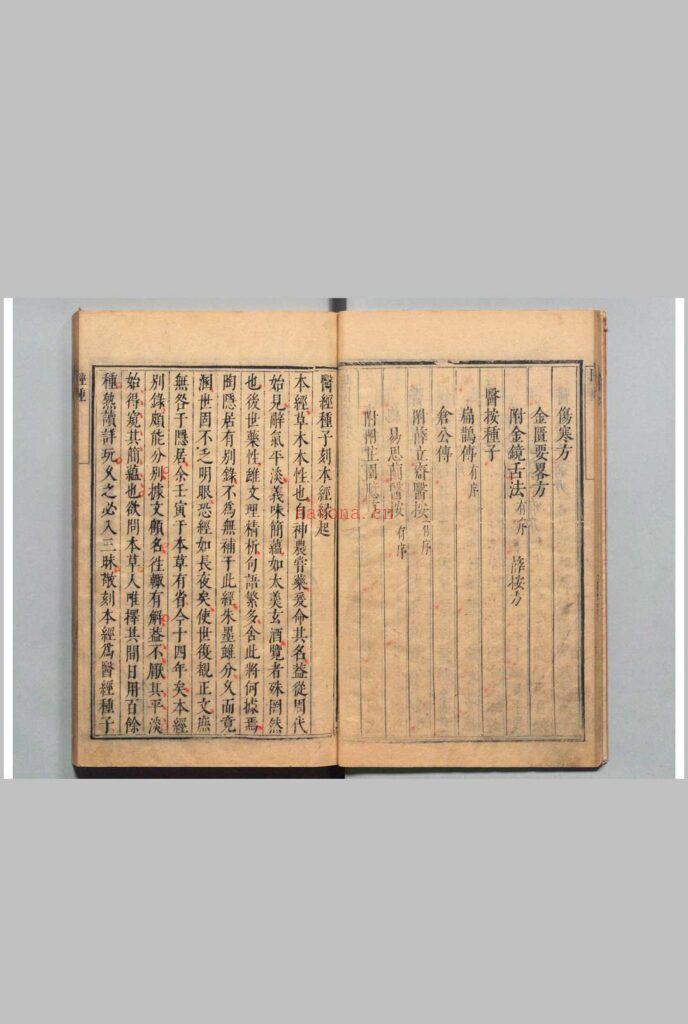 傷寒方
金匱要畧方
附金鏡舌法有序 薛按方
醫按種子
扁鵲傳有序
倉公傳
附薛立齋醫按有序
易思蘭醫按有序
附
醫經種子刻本經緣起
本經草木本性也自神農嘗藥爰命其名益從周代
始見辭氣平淡義味簡蘊如太羹玄酒覽者殊罔然
也後世藥性雖文理精析句語繁多舍此將何據焉
陶隱居有別錄不為無補于此經朱墨雖分久而竟
溷世固不乏明眼恐經如長夜矣使世復覩正文庶
無咎于隱居余壬寅于本草有省今十四年矣本經
別錄頗能分別據文顧名往輙有解益不厭其平淡
始得窺其簡蘊也欲問本草人唯擇其間日用百餘
種熟讀詳玩久之必入三昧敬刻本經為醫經種子
natona.cn